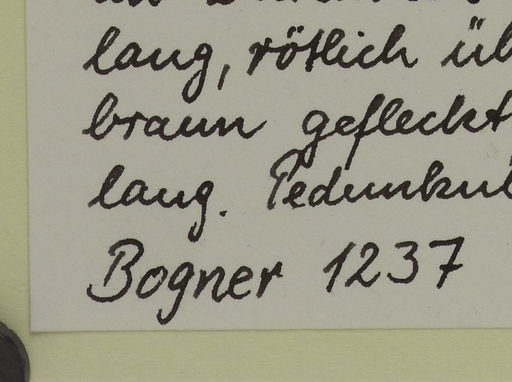 lang, rötlich üb
braun gefleckt
lang. Pedunkul
Bogner 1237